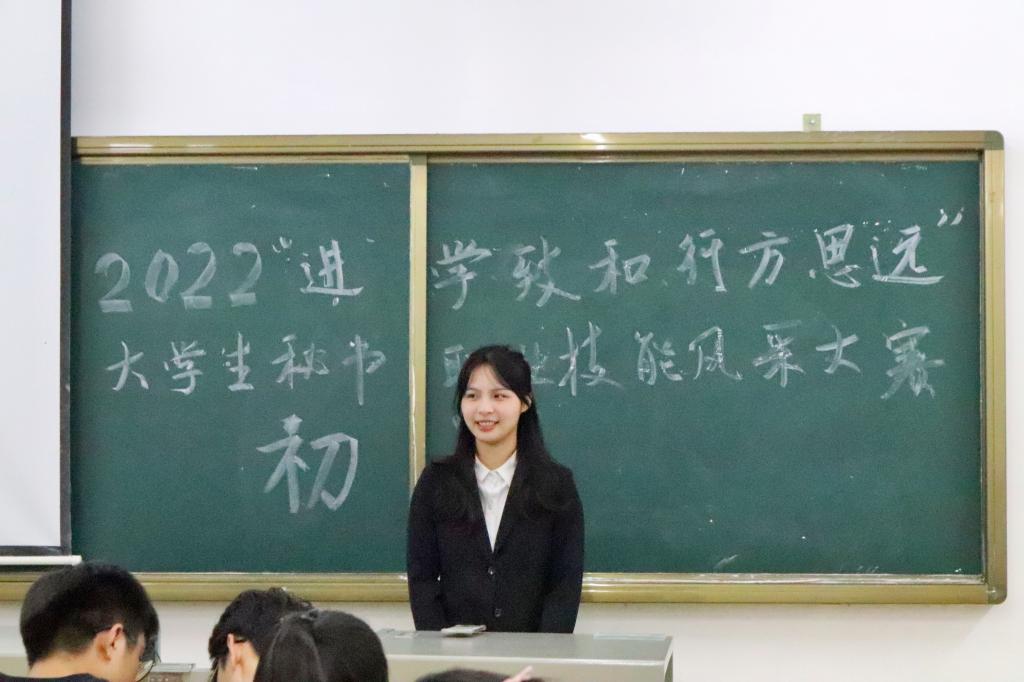 2022“进学致和行方思远”
大学生秘书职业技能风采大赛
初